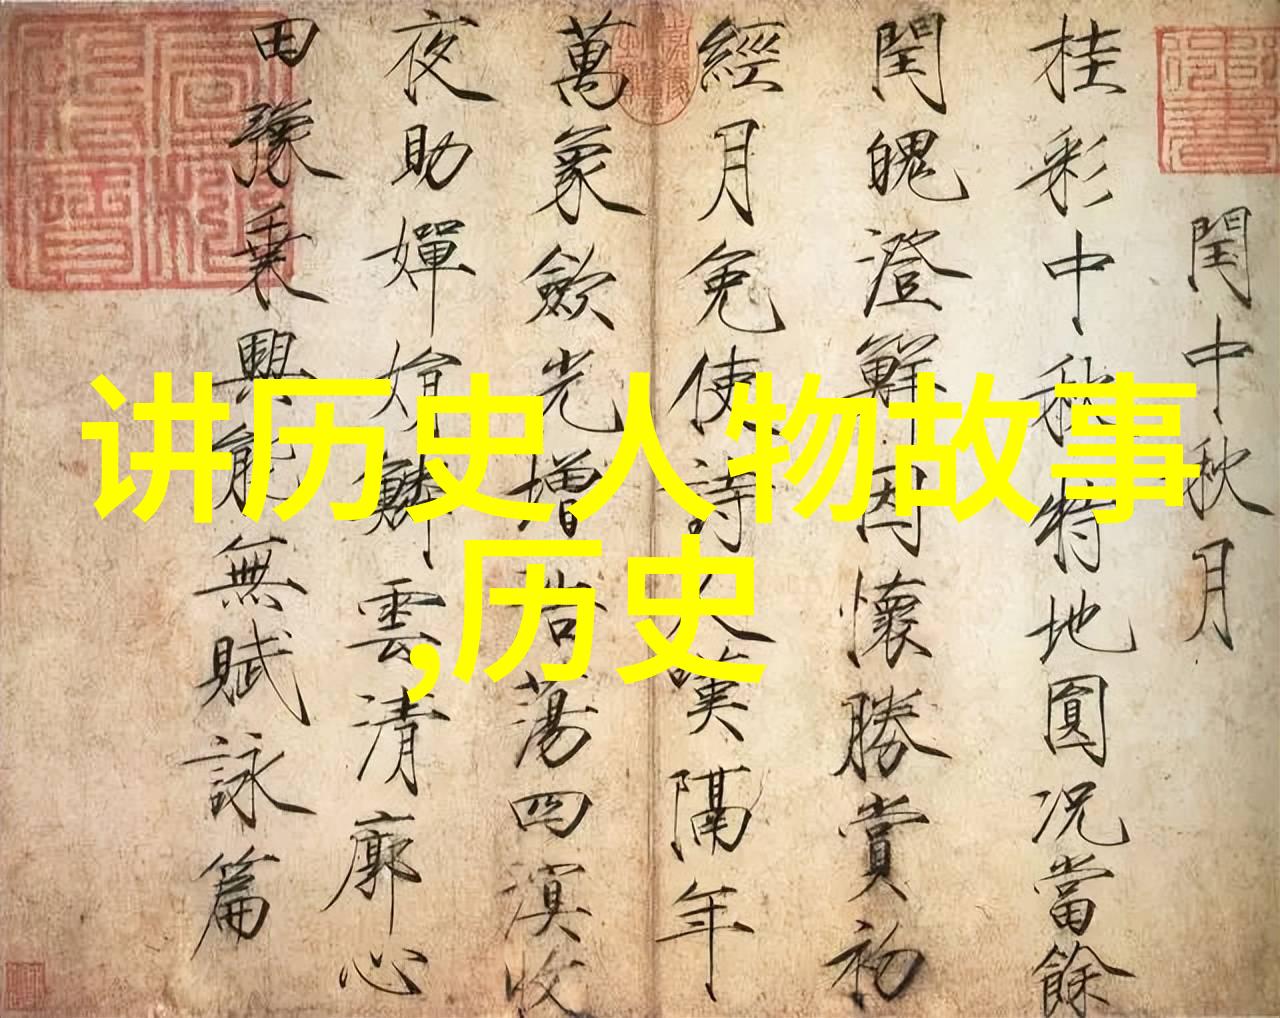 閏中秋月
桂彩中秋特地圓況當餘
閏魄澄鮮因懷勝賞初
經月免使詩人嘆隔年
萬象歛光增浩蕩四溟收
夜助嬋娟鱗雲清廓心
田豫乘興能無賦詠篇
讲历史人物故事
,历史